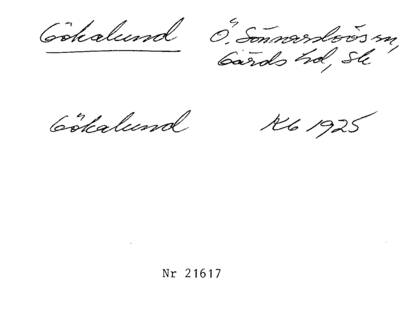 Gökalund Ö. Sönnarslövs sn,
Gärds hd, Sk
Gökalund Kb 1925
Nr 21617